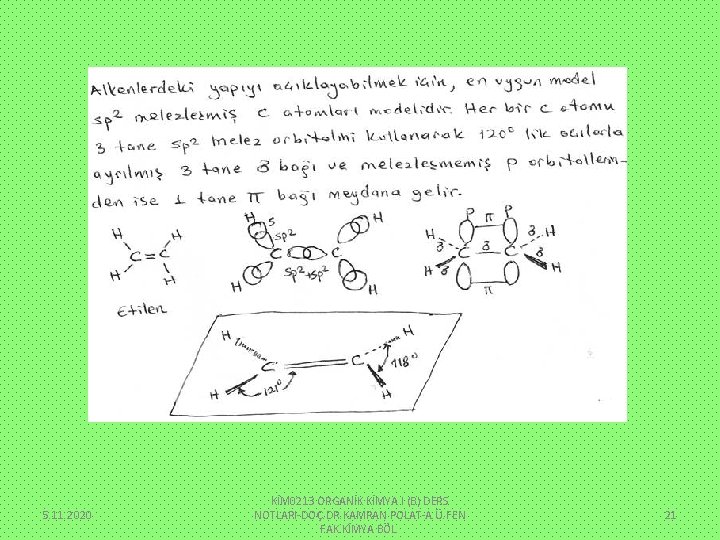 Alkenlerdeki yapıyı açıklayabilmek için, en uygun model
sp2 melezleşmiş C atomları modelidir. Her bir C atomu
3 tane sp2 melez orbitalini kullanarak 120° lik açılarla
ayrılmış 3 tane δ bağı ve melezleşmemiş p orbitallerin-
den ise 1 tane π bağı meydana gelir.
H H
C=C
H H
Etilen
H S H
sp2
C C
sp2+sp2
H H
P π P
H δ δ H
C δ C
H δ δ H
π
H H
C C
H 121° 118° H
5.11.2020
KİM0213 ORGANİK KİMYA I (B) DERS
NOTLARI-DOÇ.DR.KAMRAN POLAT-A.Ü.FEN
FAK.KİMYA BÖL
21